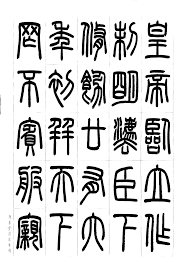 皇帝臨立作
制明灋臣下
脩飭廿有六
年初并天下
罔不賓服親